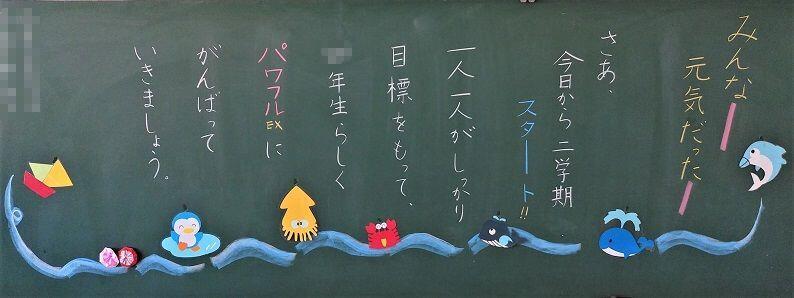 みんな
元気だった
さあ、
今日から二学期
スタート!!
一人一人がしっかり
目標をもって、
年生らしく
パワフルEXに
がんばって
いきましょう。